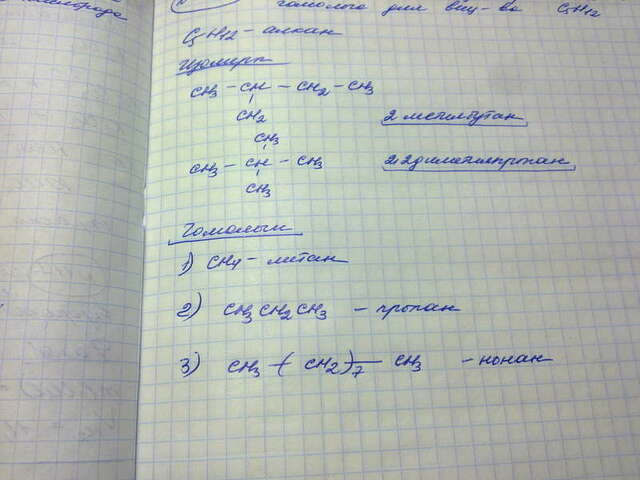 гомолога для вещ-ва C5H12
C5H12 - алкан
Изомеры
CH3 - CH - CH2 - CH3
CH2
2 метилбутан
CH3
CH3 - CH - CH3
2,2 диметилпропан
CH3
Гомологи
1) CH4 - метан
2) CH3 CH2 CH3 - пропан
3) CH3 - ( CH2 )7 - CH3 - нонан